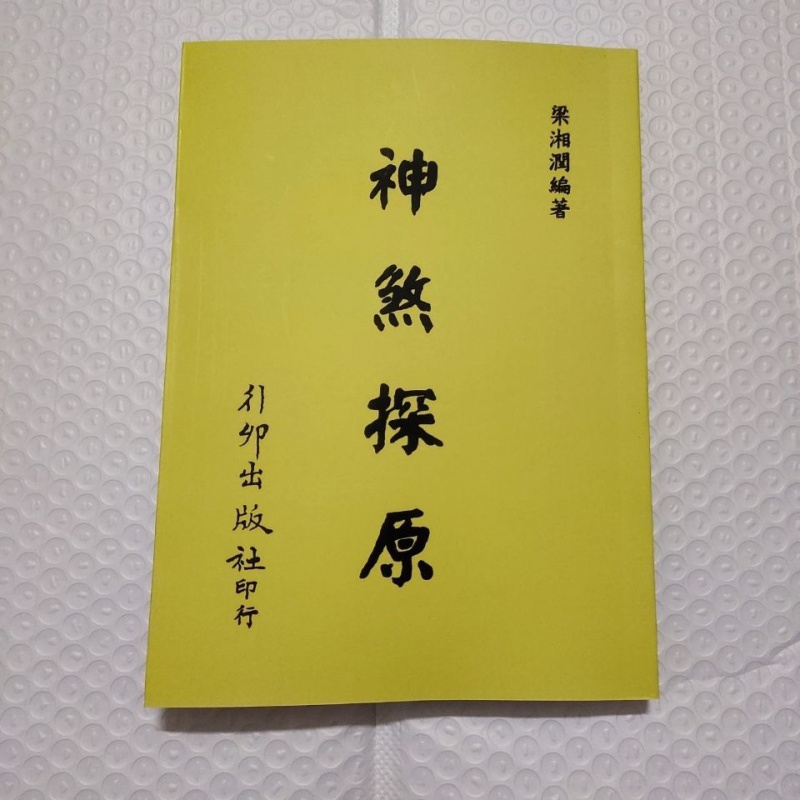 梁湘潤編著
神煞探原
行卯出版社印行